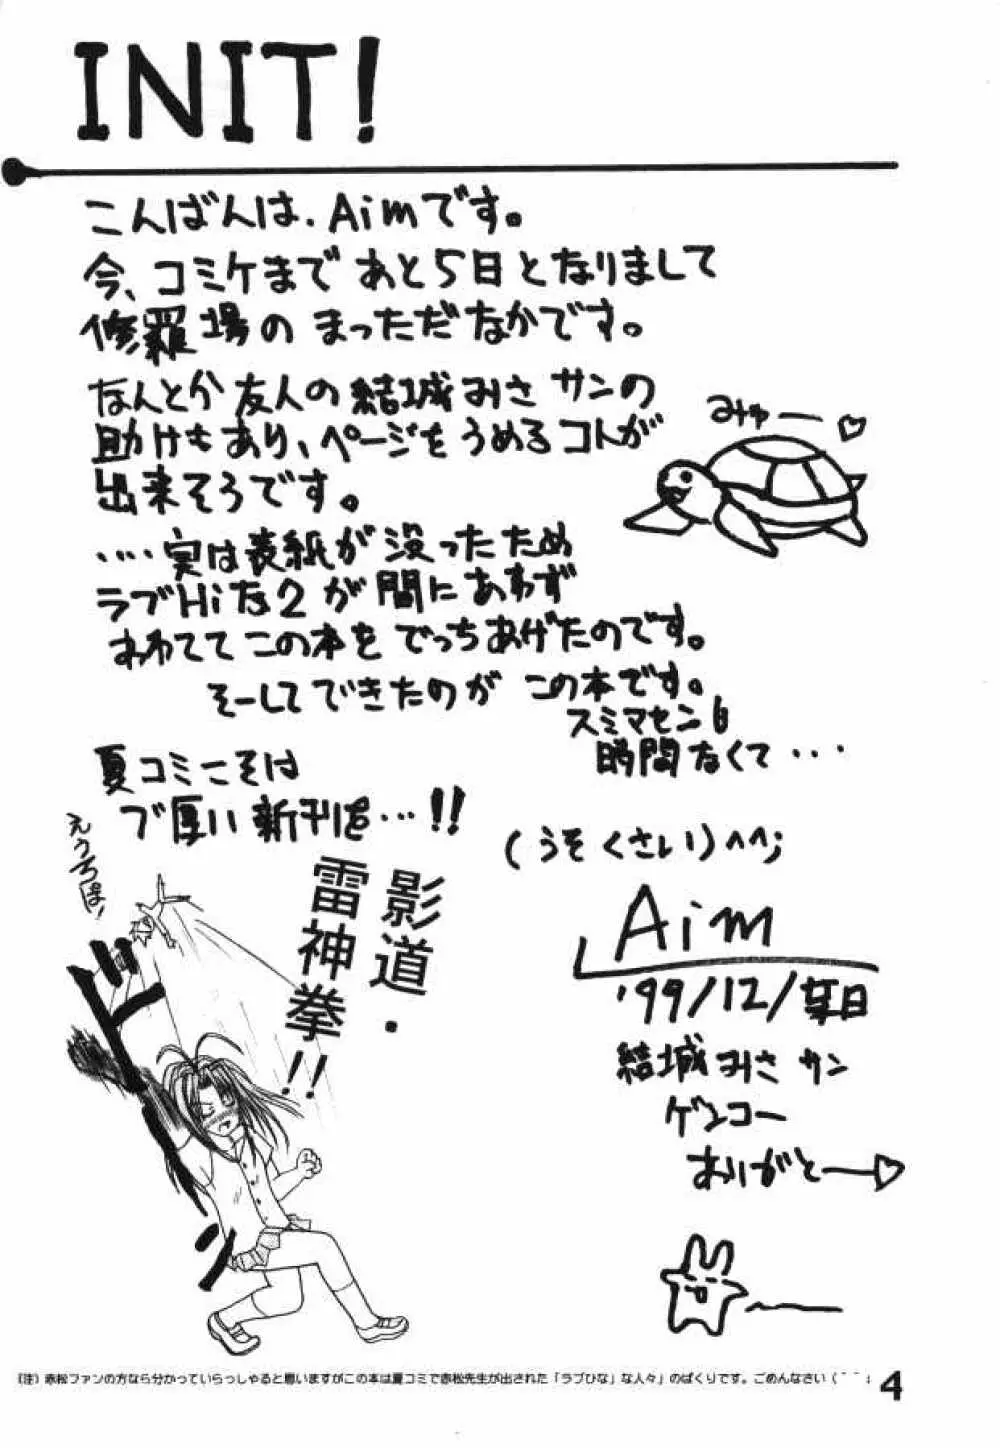 INIT!
こんばんは、Aimです。
今、コミケまであと5日となりまして
修羅場のまっただなかです。
なんとか友人の結城みさサンの
助けもあり、ページをうめるコトが
出来そうです。
みゅー♡
‥‥実は表紙が没ったため
ラブHiな2が間にあわず
あわててこの本をでっちあげたのです。
そーしてできたのがこの本です。
スミマセン
時間なくて・・・
夏コミこそは
ブ厚い新刊を…!!
(うそくさい)^^;
えうちぽ!
影道・
雷神拳!!
ドーン
Aim
'99/12/某日
結城みさサン
ゲンコー
ありがとー♡
(注)赤松ファンの方なら分かっていらっしゃると思いますがこの本は夏コミで赤松先生が出された「ラブひな」な人々」のぱくりです。ごめんなさい(^^;
4